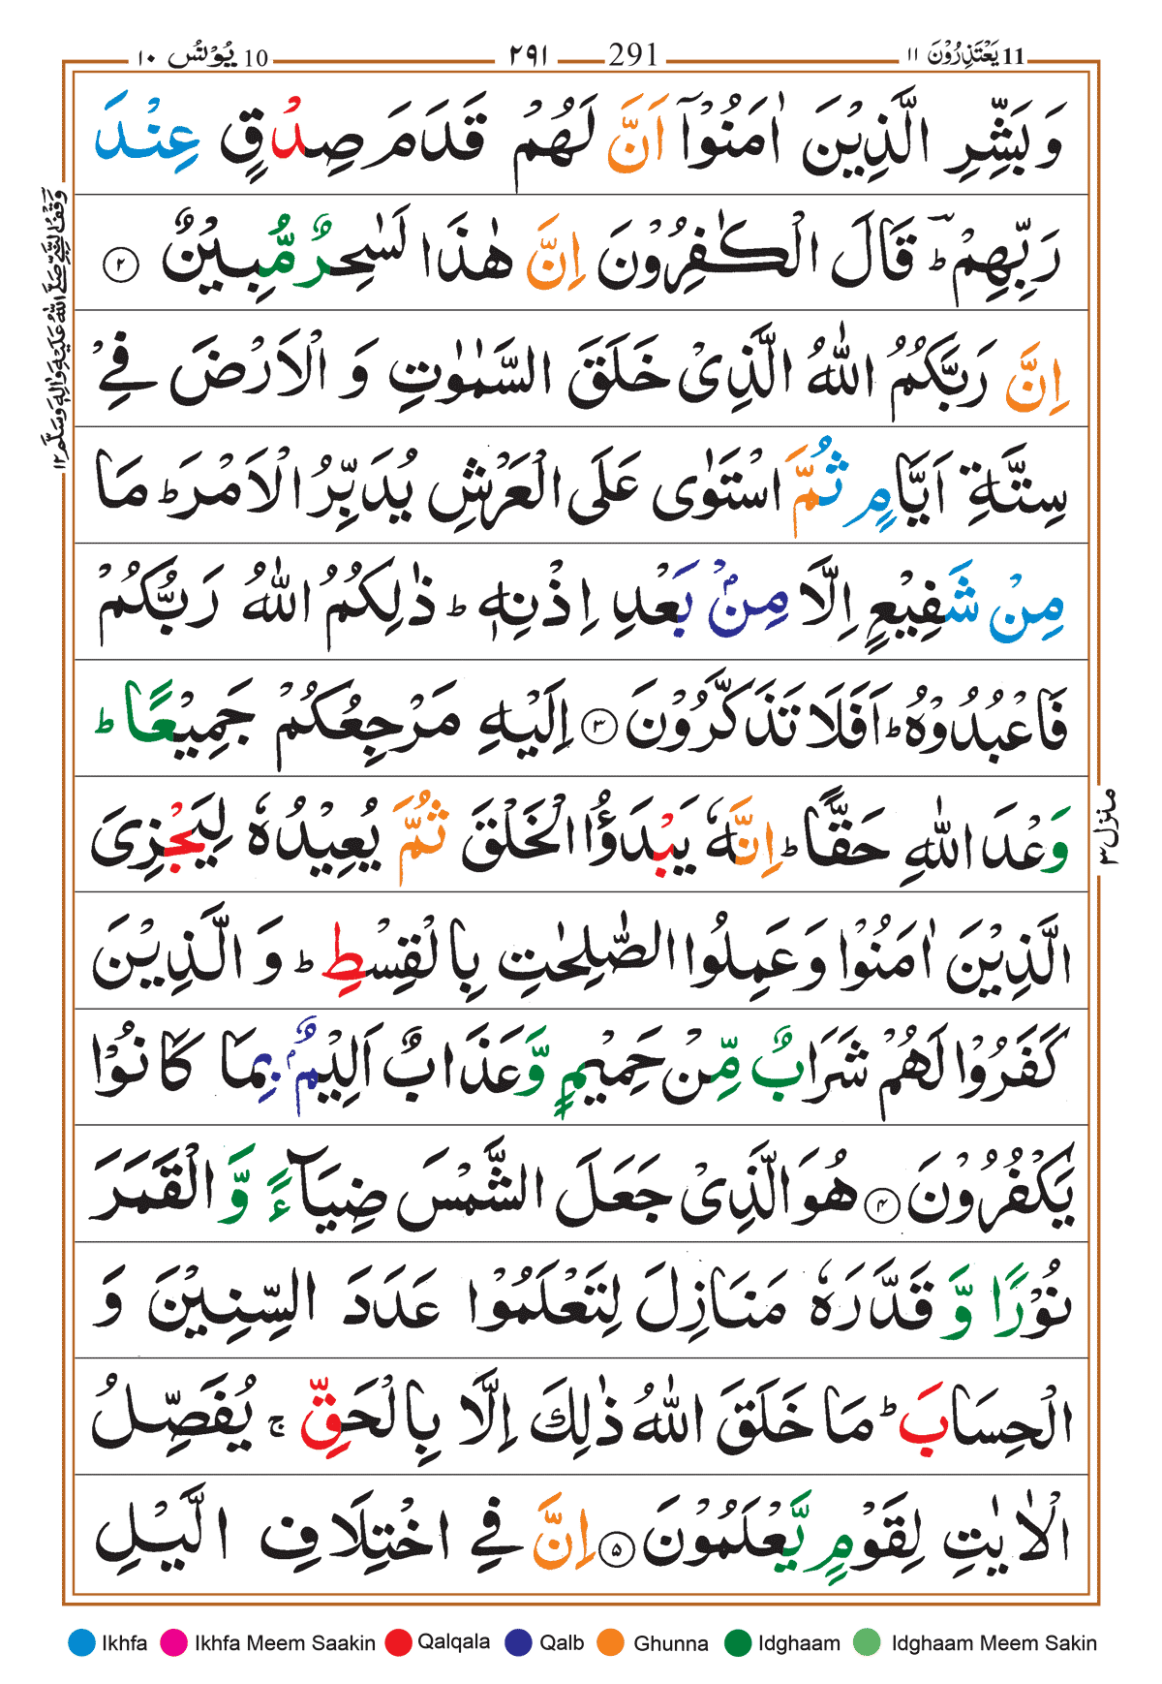 11 يَعْتَذِرُوْنَ ١١ 291 ٢٩١ 10 يُوْنُسُ ١٠
وَبَشِّرِ الَّذِيْنَ اٰمَنُوْۤا اَنَّ لَهُمْ قَدَمَ صِدْقٍ عِنْدَ
رَبِّهِمْ ؕ قَالَ الْكٰفِرُوْنَ اِنَّ هٰذَا لَسٰحِرٌ مُّبِيْنٌ ۝٢
اِنَّ رَبَّكُمُ اللّٰهُ الَّذِىْ خَلَقَ السَّمٰوٰتِ وَ الْاَرْضَ فِىْ
سِتَّةِ اَيَّامٍ ثُمَّ اسْتَوٰى عَلَى الْعَرْشِ يُدَبِّرُ الْاَمْرَ ؕ مَا
مِنْ شَفِيْعٍ اِلَّا مِنْۢ بَعْدِ اِذْنِهٖ ؕ ذٰلِكُمُ اللّٰهُ رَبُّكُمْ
فَاعْبُدُوْهُ ؕ اَفَلَا تَذَكَّرُوْنَ ۝٣ اِلَيْهِ مَرْجِعُكُمْ جَمِيْعًا ؕ
وَعْدَ اللّٰهِ حَقًّا ؕ اِنَّهٗ يَبْدَؤُا الْخَلْقَ ثُمَّ يُعِيْدُهٗ لِيَجْزِىَ
الَّذِيْنَ اٰمَنُوْا وَعَمِلُوا الصّٰلِحٰتِ بِالْقِسْطِ ؕ وَ الَّذِيْنَ
كَفَرُوْا لَهُمْ شَرَابٌ مِّنْ حَمِيْمٍ وَّعَذَابٌ اَلِيْمٌۢ بِمَا كَانُوْا
يَكْفُرُوْنَ ۝٤ هُوَ الَّذِىْ جَعَلَ الشَّمْسَ ضِيَآءً وَّ الْقَمَرَ
نُوْرًا وَّ قَدَّرَهٗ مَنَازِلَ لِتَعْلَمُوْا عَدَدَ السِّنِيْنَ وَ
الْحِسَابَ ؕ مَا خَلَقَ اللّٰهُ ذٰلِكَ اِلَّا بِالْحَقِّ ۚ يُفَصِّلُ
الْاٰيٰتِ لِقَوْمٍ يَّعْلَمُوْنَ ۝٥ اِنَّ فِى اخْتِلَافِ الَّيْلِ
وَقْفُ النَّبِىِّ صَلَّى اللّٰهُ عَلَيْهِ وَاٰلِهٖ وَسَلَّمَ ١٢
منزل ٣
Ikhfa Ikhfa Meem Saakin Qalqala Qalb Ghunna Idghaam Idghaam Meem Sakin